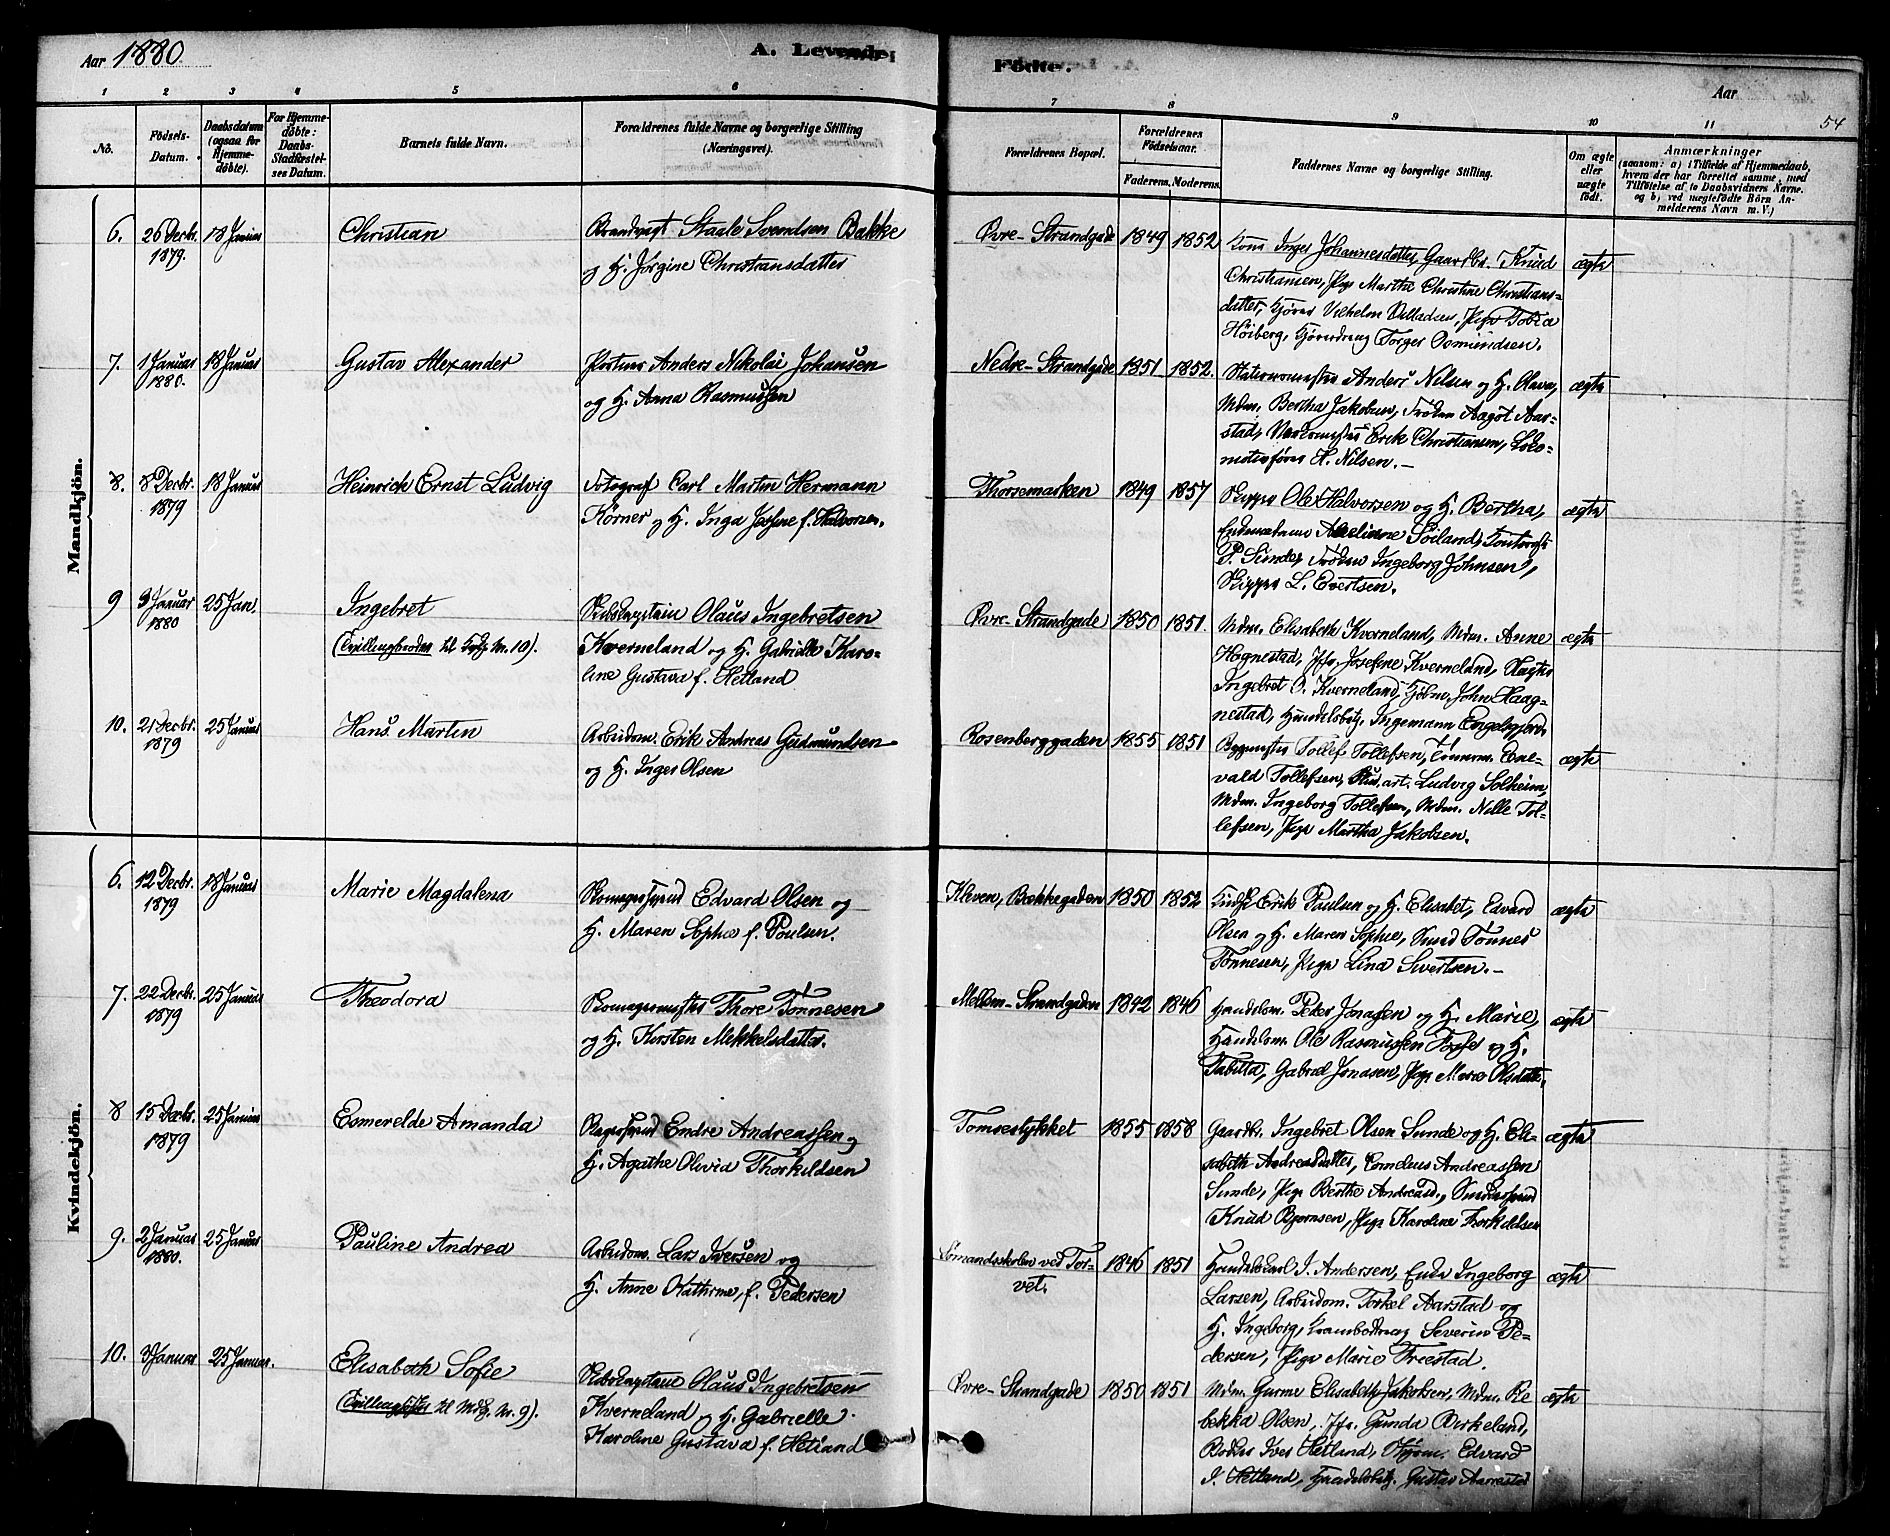 Aar 1880.
A. Levende
Födte.
Aar
54
1 2 3 4 5 6 7 8 9 10 11
No.
Födsels-Datum.
Daabsdatum (ogsaa for Hjemme-döbte).
For Hjemme-döbte: Daabs-Stadfæstel-ses Datum.
Barnets fulde Navn.
Forældrenes fulde Navne og borgerlige Stilling (Næringsvei).
Forældrenes Bopæl.
Forældrenes Födselsaar.
Faderens. Moderens.
Faddernes Navne og borgerlige Stilling.
Om ægte eller uægte födt.
Anmærkninger
(saasom: a) i Tilfælde af Hjemmedaab,
hvem der har forrettet samme, med
Tilföielse af to Daabsvidners Navne.
og b) ved uægtefödte Börn An-
melderens Navn m. V.)
Mandkjön.
6. 26 Decbr. 1879. 18 Januar
Christian
Brandvagt Staale Svendsen Bakke
og H. Jorgine Christiansdatter
Øvre-Strandgade 1849 1852
Kone Inger Johannesdatter, Gaardbr. Knud
Christiansen, Pige Marthe Christine Christians-
datter, Kjører Vilhelm Villadsen, Pige Tobia
Høiberg, Torger Osmundsen.
ægte
7. 1 Januar 1880. 18 Januar
Gustav Alexander
Portner Anders Nikolai Johansen
og H. Anna Rasmussen
Nedre-Strandgade 1851 1852.
Stationsmester Anders Nilsen og H. Olava,
Mdm. Bertha Jakobsen, Frøken Aagot Aar-
stad, Erik Christiansen, Loko-
motivfører H. Nilsen.-
ægte
8. 8 Decbr. 1879 18 Januar
Heinrich Ernst Ludvig
Fotograf Carl Martin Hermann
Körner og H. Inga Josfine f. Halvorsen.
Thorsemarken 1849 1857
Skipper Ole Halvorsen og H. Bertha,
Soiland,
P. Sunde, Frøken Ingeborg Johnsen,
Skipper L. Evertsen.
ægte
9 3 Januar 1880 25 Jan.
Ingebret
(Tvillingbroder til Nr. 10).
Skibscaptain Olaus Ingebretsen
Kverneland og H. Gabrielle Karo-
line Gustava f. Hetland
Øvre-Strandgade 1850 1851.
Mdm. Elisabeth Kverneland, Mdm. Anne
Hognestad, Jfr. Josefine Kverneland,
Ingebret O. Kverneland, John Haag-
nestad, Handelsbetj. Ingemann Engelsgjerd.
ægte
10. 21 Decbr. 1879 25 Januar
Hans Martin
Arbeidsm. Erik Andreas Gudmundsen
og H. Inger Olsen
Rosenberggaden 1855 1851
Bygmester Tollef Tollefsen, Tømmerm. Ene-
vald Tollefsen, Ludvig Solheim,
Mdm. Ingeborg Tollefsen, Mdm. Nille Tol-
lefsen, Pige Martha Jakobsen.
ægte
Kvindekjön.
6. 12 Decbr. 1879 18 Januar
Marie Magdalena
Skomagersvend Edvard Olsen og
H. Maren Sophie f. Poulsen.
Kleven, Bækkegaden 1850 1852
Erik Paulsen og H. Elisabet, Edvard
Olsen og H. Maren Sophie, Smed Tönnes
Tönnesen, Pige Lina Sivertsen.-
ægte
7. 22 Decbr. 1879 25 Januar
Theodora
Skomagermester Thore Tönnesen
og H. Kirsten Mikkelsdatter.
Mellem-Strandgaden 1842 1846
Handelsm. Peder Jonassen og H. Marie,
Handelsm. Ole Rasmussen og H.
Tabitta, Gabriel Jonasen, Pige Marie Olsdatter.
ægte
8 15 Decbr. 1879 25 Januar
Esmerelde Amanda
Bagersvend Endre Andreassen og
H. Agathe Olivia Thorkildsen
Tomsestykket 1855 1858
Gaardbr. Ingebret Olsen Sunde og H. Eli-
sabeth Andreasdatter, Cornelius Andreassen
Sunde, Pige Berthe Andreasd., Smedesvend
Knud Bjørnsen, Pige Karoline Thorkildsen
ægte
9. 2 Januar 1880. 25 Januar
Pauline Andrea
Arbeidsm. Lars Iversen og
H. Anne Kathrine, f. Pedersen
Sömandsskolen ved Tor-
vet.
1846 1851
Handelskarl J. Andersen, Enke Ingeborg
Larsen, Arbeidsm. Torkel Aarstad og
H. Ingeborg, Krambodsvend Severin Pe-
dersen, Pige Marie Treestad.
ægte
10. 3 Januar 25 Januar.
Elisabeth Sofie
(Tvillingsöster til Nr. 9).
Skibscaptain Olaus Ingebretsen
Kverneland og H. Gabrielle
Karoline Gustava f. Hetland
Øvre-Strandgade 1850 1851
Mdm. Gurine Elisabeth Jakobsen, Mdm. Re-
bekka Olsen, Jfr. Gunda Birkeland,
Iver Hetland, Edvard
I. Hetland, Handelsbetj. Gustav Aarrestad
ægte